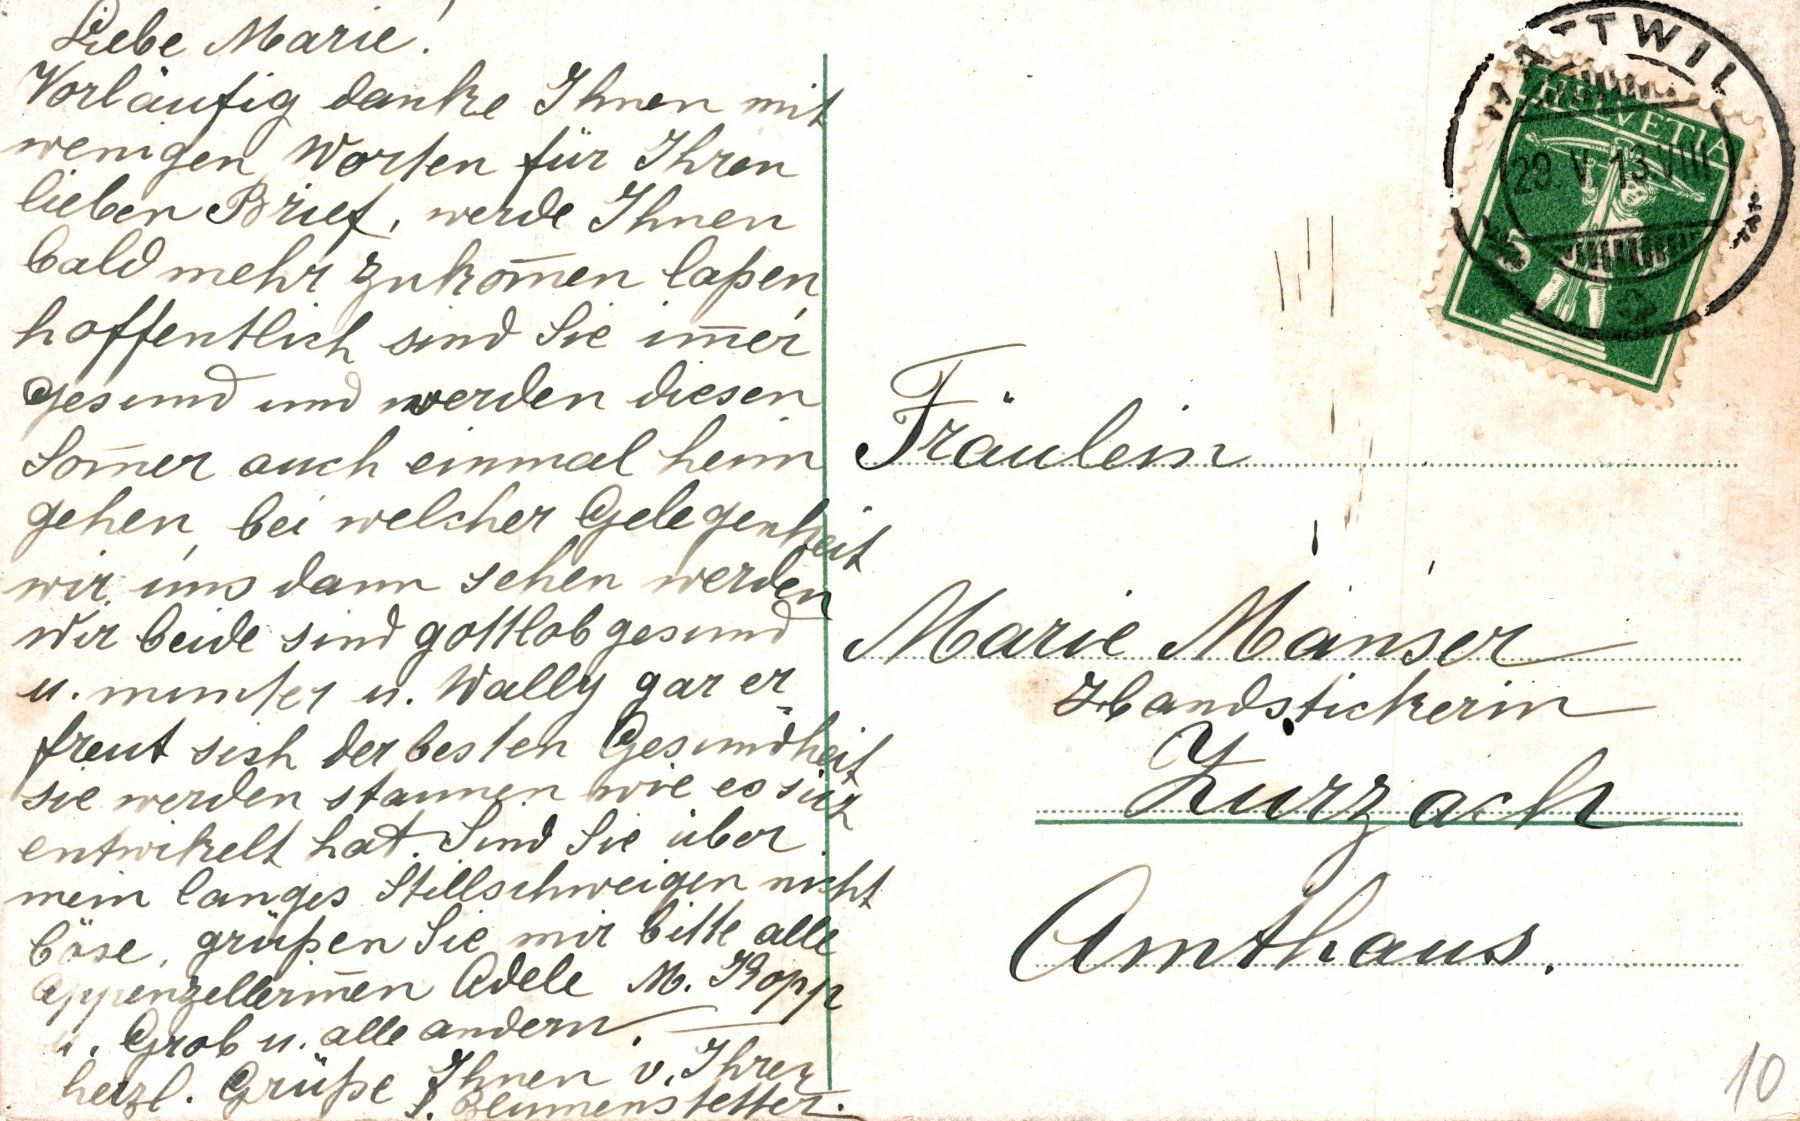 Liebe Marie!
Vorläufig danke Ihnen mit
wenigen Worten für Ihren
lieben Brief, werde Ihnen
bald mehr zukom̅en laßen,
hoffentlich sind Sie im̅er
gesund und werden diesen
Som̅er auch einmal heim
gehen, bei welcher Gelegenheit
wir uns dann sehen werden
Wir beide sind gottlob gesund
u. munter u. Wally gar er-
freut sich der besten Gesundheit
sie werden staunen wie es sich
entwikelt hat. Sind Sie über
mein langes Stillschweigen nicht
böse, grüßen Sie mir bitte alle
Appenzellerin̅en Adele M. Kopp
u. Grob u. alle andern.
herzl. Grüße Ihnen v. Ihrer
Blumenstetter.
WATTWIL
29. V. 13. VIII
HELVETIA
5
Fräulein
Marie Manser
Handstickerin
Zurzach
Amthaus.
10